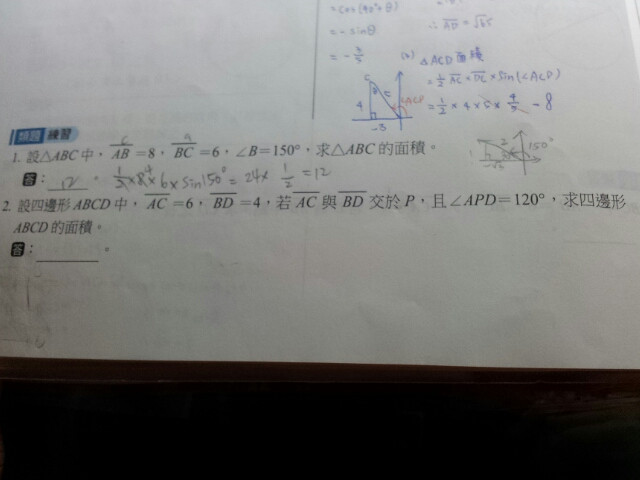 = cos(90°+θ)
= -sinθ
∴ AD = √65
= -3/5
(2) △ACD面積
= 1/2 AC × DC × sin(∠ACD)
= 1/2 × 4 × 5 × 4/5 = 8
C
θ
4
5
∠ACD
-3
類題 練習
c a
1. 設△ABC中，AB=8，BC=6，∠B=150°，求△ABC的面積。
答：12。 1/2×8×6×sin150°=24×1/2=12
2
150°
2. 設四邊形ABCD中，AC=6，BD=4，若AC與BD交於P，且∠APD=120°，求四邊形
ABCD的面積。
答：______。